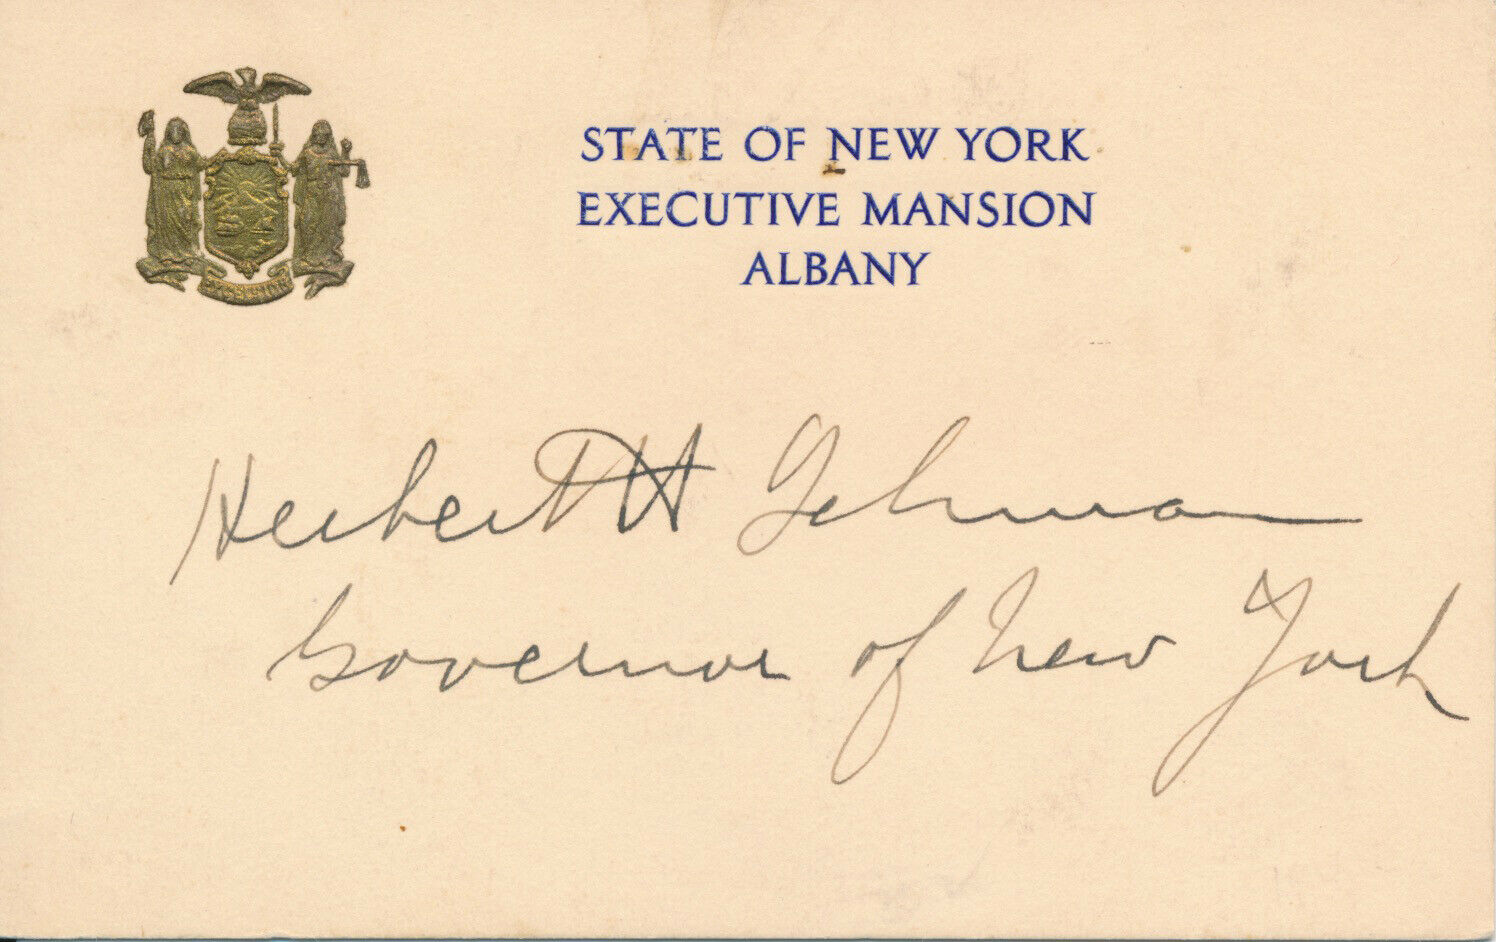 STATE OF NEW YORK
EXECUTIVE MANSION
ALBANY
EXCELSIOR
Herbert H Lehman
Governor of New York